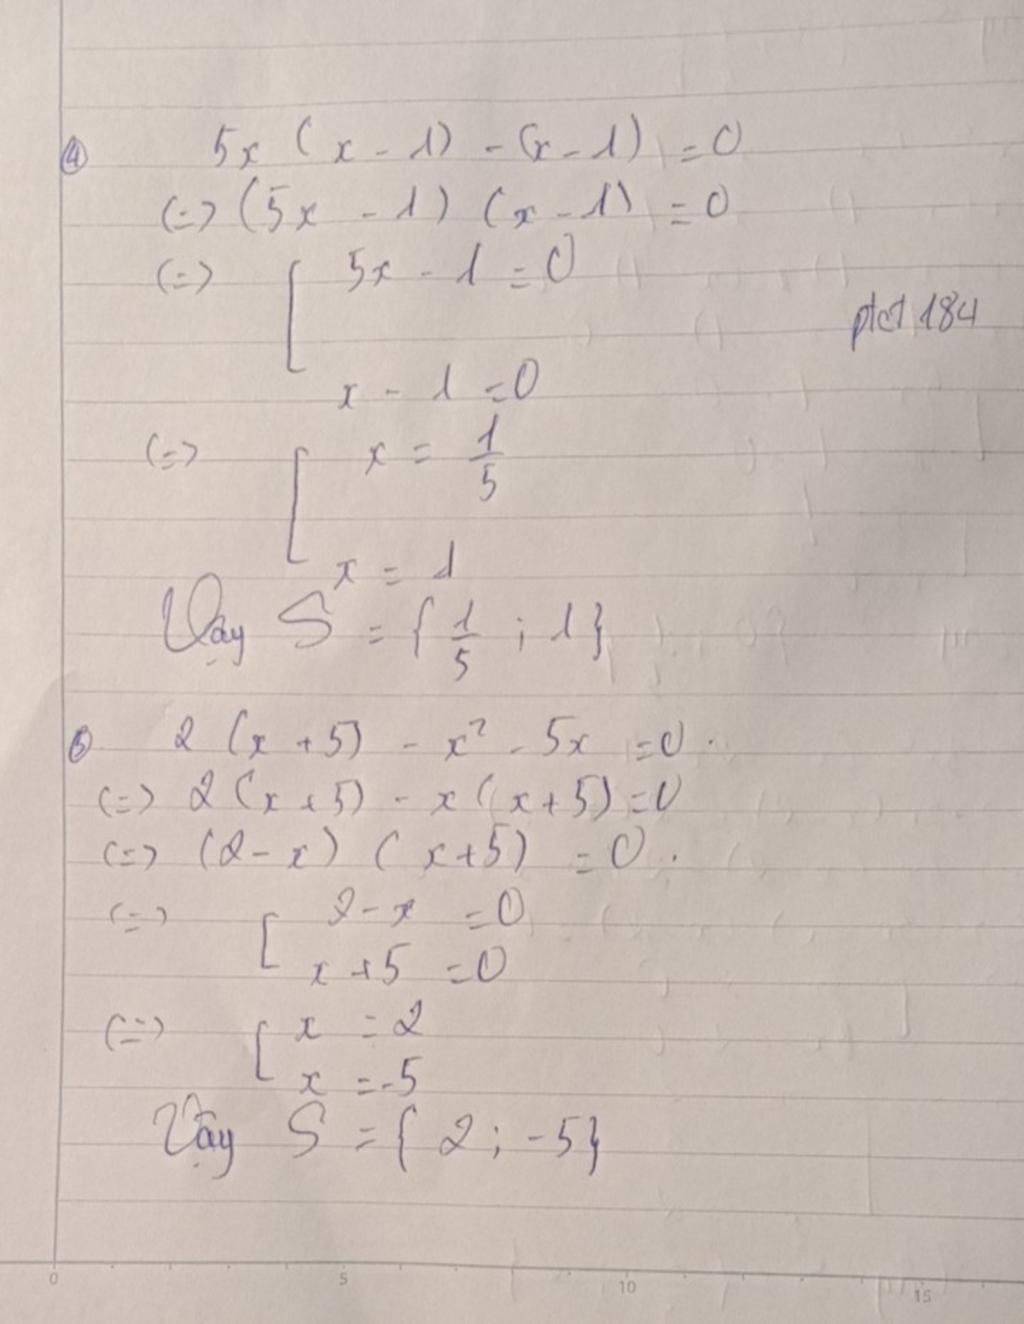 ④ 5x (x - 1) - (x - 1) = 0
<=> (5x - 1) (x - 1) = 0
<=> [ 5x - 1 = 0
x - 1 = 0
ptct 184
<=> [ x = 1/5
x = 1
Vậy S = { 1/5 ; 1}
⑤ 2 (x + 5) - x² - 5x = 0.
<=> 2 (x + 5) - x (x + 5) = 0
<=> (2 - x) (x + 5) = 0.
<=> [ 2 - x = 0
x + 5 = 0
<=> [ x = 2
x = -5
Vậy S = { 2 ; -5}
0 5 10 15